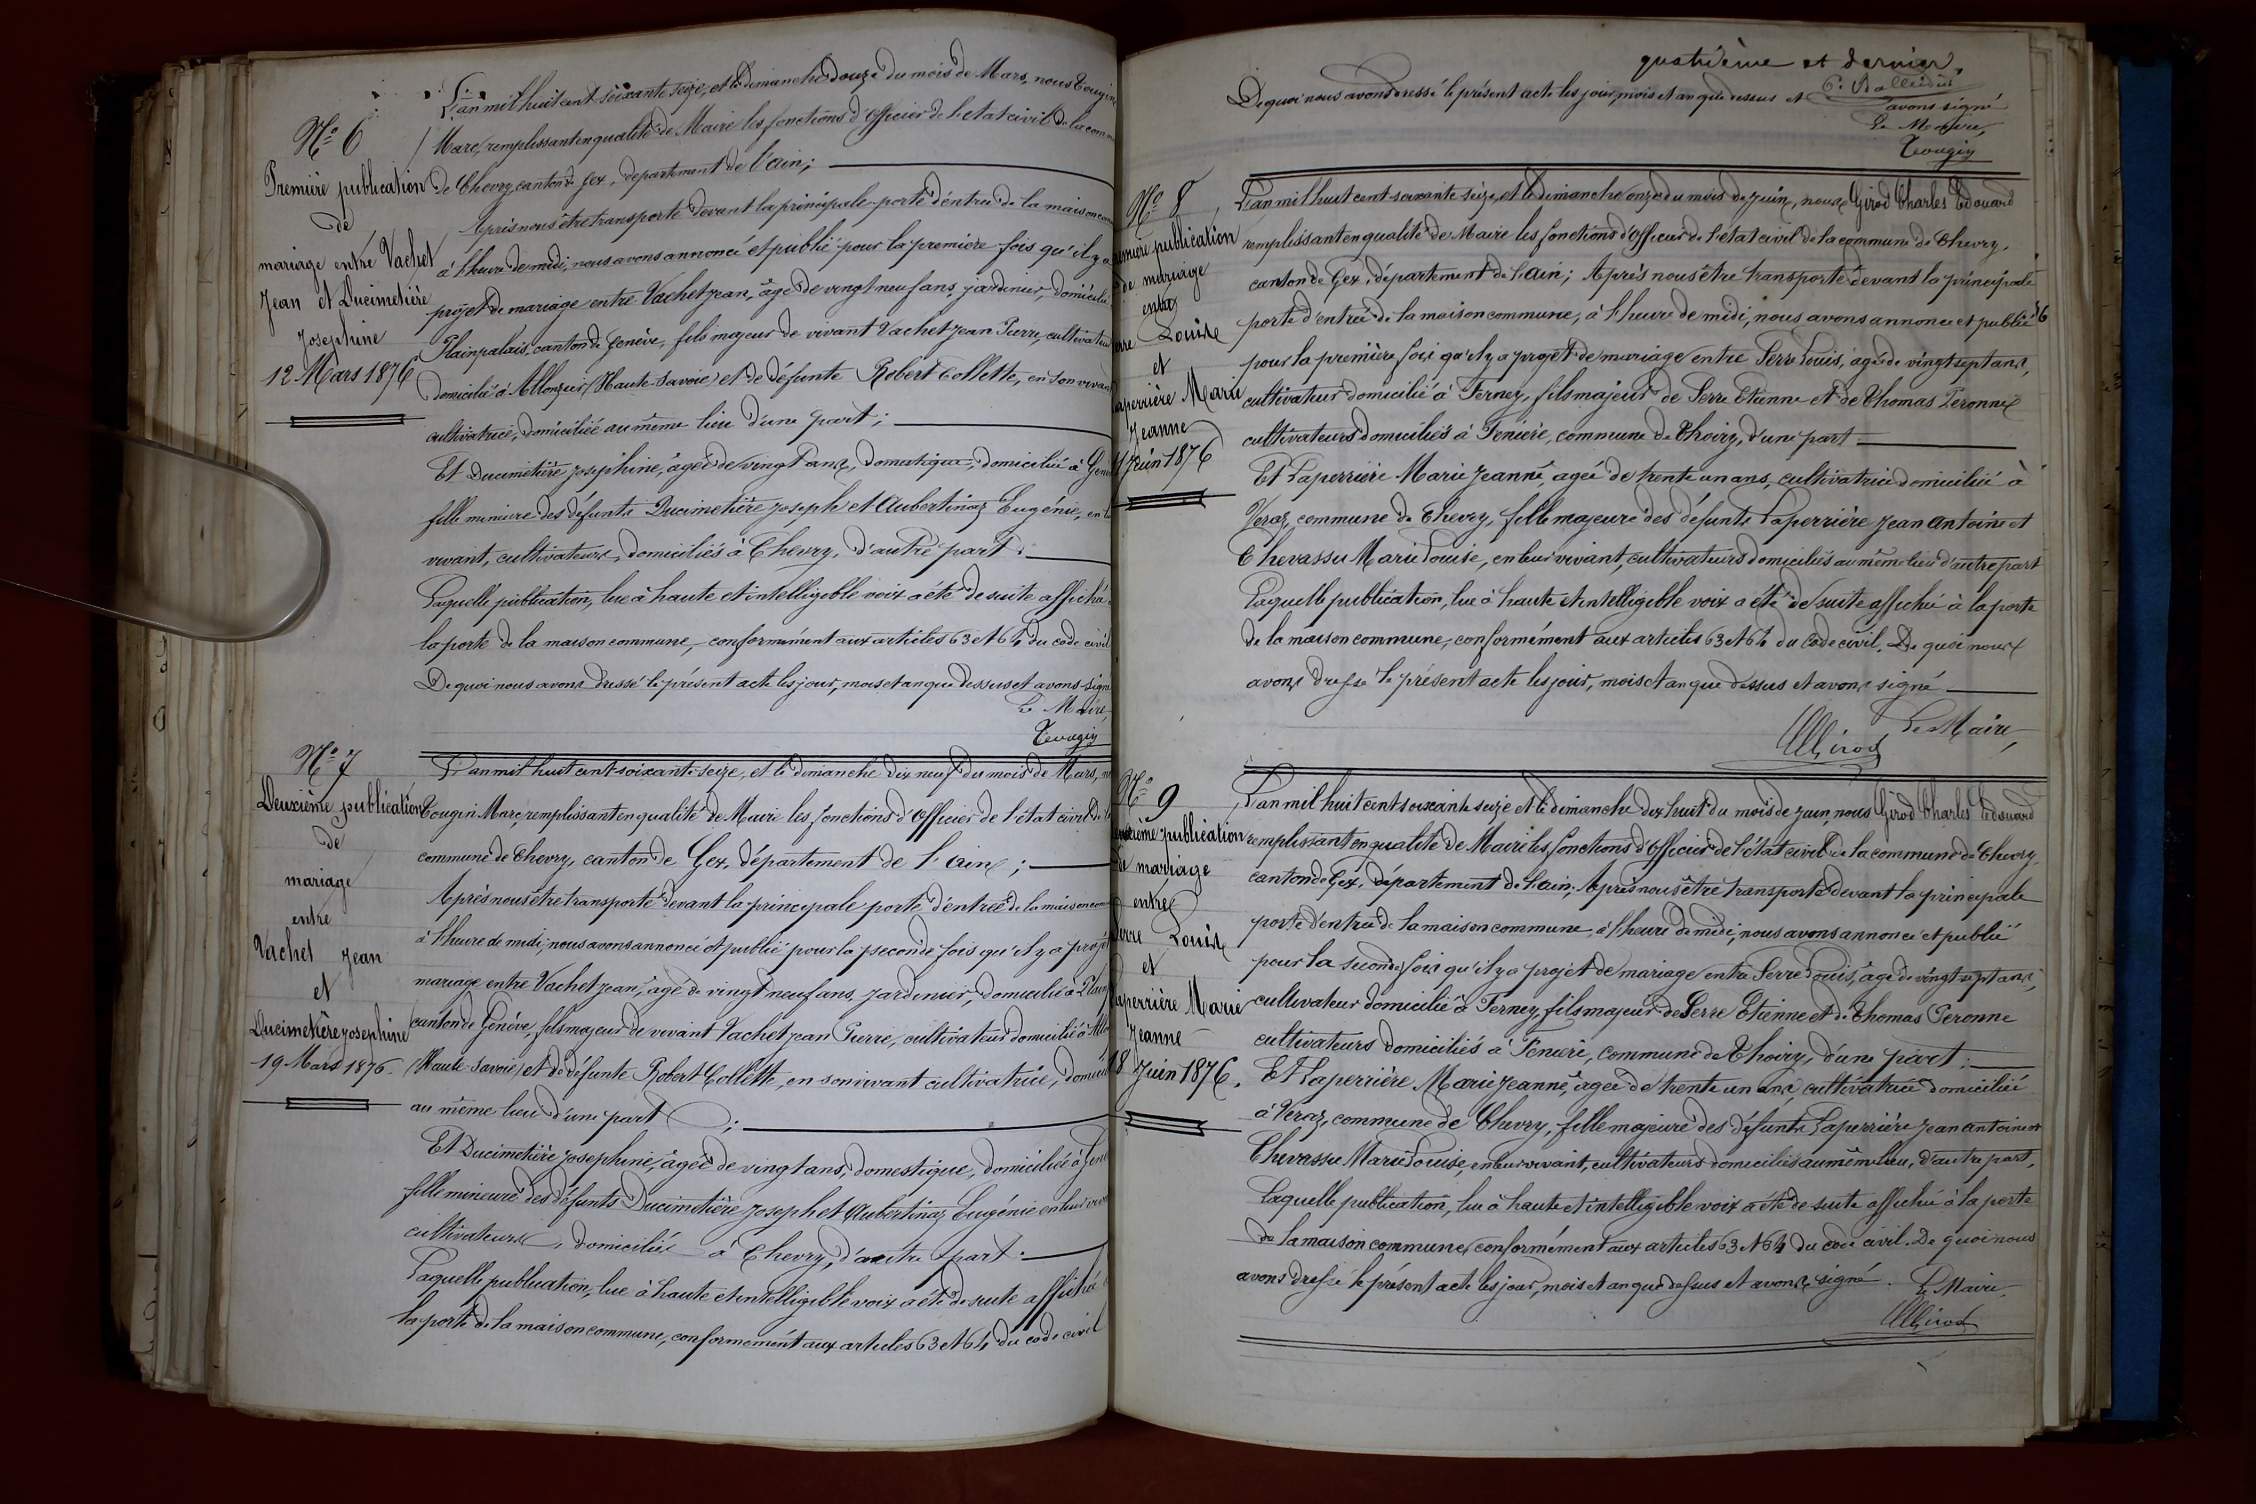 N° 6
Première publication
de
mariage entre Vachet
Jean et Ducimetière
Josephine
12 Mars 1876
L'an mil huit cent soixante seize, et le dimanche douze du mois de Mars, nous Tougin
Marc, remplissant en qualité de Maire les fonctions d'Officier de l'état civil de la com
de Chevry canton de Gex, département de l'ain;
Après nous être transporté devant la principale porte d'entrée de la maison com
à l'heure de midi, nous avons annoncé et publié pour la première fois qu'il y a
projet de mariage entre Vachet Jean, âgé de vingt neuf ans, jardinier, domicilié
Plainpalais, canton de Genève, fils majeur de vivant Vachet Jean Pierre, cultivateur
domicilié à Allonzier (Haute-Savoie) et de défunte Robert Collette, en son vivant
cultivatrice, domiciliée au même lieu d'une part;
Et Ducimetière Joséphine, âgée de vingt ans, domestique, domiciliée à Gen
fille mineure des défunts Ducimetière Joseph et Aubertinaz Eugénie, en l
vivant, cultivateurs, domiciliés à Chevry, d'autre part.
Laquelle publication, lue à haute et intelligible voix a été de suite affichée
la porte de la maison commune, conformément aux articles 63 et 64 du code civil
De quoi nous avons dressé le présent acte les jour, mois et an que dessus et avons signé
Le Maire,
Tougin
N° 7
Deuxième publication
de
mariage
entre
Vachet Jean
et
Ducimetière Josephine
19 Mars 1876
L'an mil huit cent soixante seize, et le dimanche dix neuf du mois de Mars, n
Tougin Marc, remplissant en qualité de Maire les fonctions d'Officier de l'état civil de l
commune de Chevry, canton de Gex, département de l'ain;
Après nous être transporté devant la principale porte d'entrée de la maison com
à l'heure de midi, nous avons annoncé et publié pour la seconde fois qu'il y a projet
mariage entre Vachet Jean, âgé de vingt neuf ans, jardinier, domicilié à Plain
canton de Genève, fils majeur de vivant Vachet Jean Pierre, cultivateur domicilié à All
(Haute-Savoie) et de défunte Robert Collette, en son vivant cultivatrice, domicil
au même lieu d'une part;
Et Ducimetière Josephine, âgée de vingt ans, domestique, domiciliée à Gen
fille mineure des défunts Ducimetière Joseph et Aubertinaz Eugénie en leur viv
cultivateurs, domiciliés à Chevry, d'autre part.
Laquelle publication, lue à haute et intelligible voix a été de suite affichée
la porte de la maison commune, conformément aux articles 63 et 64 du code civil
quatrième et dernier.
De quoi nous avons dressé le présent acte les jour, mois et an que dessus et
avons signé
Le Maire,
Tougin
N° 8
première publication
de mariage
entre
Serre Louis
et
Laperrière Marie
Jeanne
11 Juin 1876
L'an mil huit cent soixante seize, et le dimanche onze du mois de Juin, nous Girod Charles Edouard
remplissant en qualité de Maire les fonctions d'Officier de l'état civil de la commune de Chevry,
canton de Gex, département de l'ain; Après nous être transporté devant la principale
porte d'entrée de la maison commune, à l'heure de midi, nous avons annoncé et publié
pour la première fois qu'il y a projet de mariage entre Serre Louis, âgé de vingt sept ans,
cultivateur domicilié à Ferney, fils majeur de Serre Etienne et de Thomas Peronne
cultivateurs domiciliés à Fenière, commune de Thoiry, d'une part
Et Laperrière Marie Jeanne, agée de trente un ans, cultivatrice domiciliée à
Veraz, commune de Chevry, fille majeure des défunts Laperrière Jean Antoine et
Chevassu Marie Louise, en leur vivant, cultivateurs domiciliés au même lieu d'autre part
Laquelle publication, lue à haute et intelligible voix a été de suite affichée à la porte
de la maison commune, conformément aux articles 63 et 64 du code civil. De quoi nous
avons dressé le présent acte les jour, mois et an que dessus et avons signé
Le Maire,
Girod
N° 9
deuxième publication
de mariage
entre
Serre Louis
et
Laperrière Marie
Jeanne
18 Juin 1876.
L'an mil huit cent soixante seize et le dimanche dix huit du mois de Juin, nous Girod Charles Edouard
remplissant en qualité de Maire les fonctions d'Officier de l'état civil de la commune de Chevry
canton de Gex, département de l'ain; Après nous être transporté devant la principale
porte d'entrée de la maison commune, à l'heure de midi, nous avons annoncé et publié
pour la seconde fois qu'il y a projet de mariage entre Serre Louis, âgé de vingt sept ans,
cultivateur domicilié à Ferney, fils majeur de Serre Etienne et de Thomas Peronne
cultivateurs domiciliés à Fenière, commune de Thoiry, d'une part;
Et Laperrière Marie Jeanne, agée de trente un ans, cultivatrice domiciliée
à Veraz, commune de Chevry, fille majeure des défunts Laperrière Jean Antoine et
Chevassu Marie Louise, en leur vivant, cultivateurs domiciliés au même lieu, d'autre part,
Laquelle publication, lue à haute et intelligible voix a été de suite affichée à la porte
de la maison commune, conformément aux articles 63 et 64 du code civil. De quoi nous
avons dressé le présent acte les jour, mois et an que dessus et avons signé.
Le Maire,
Girod